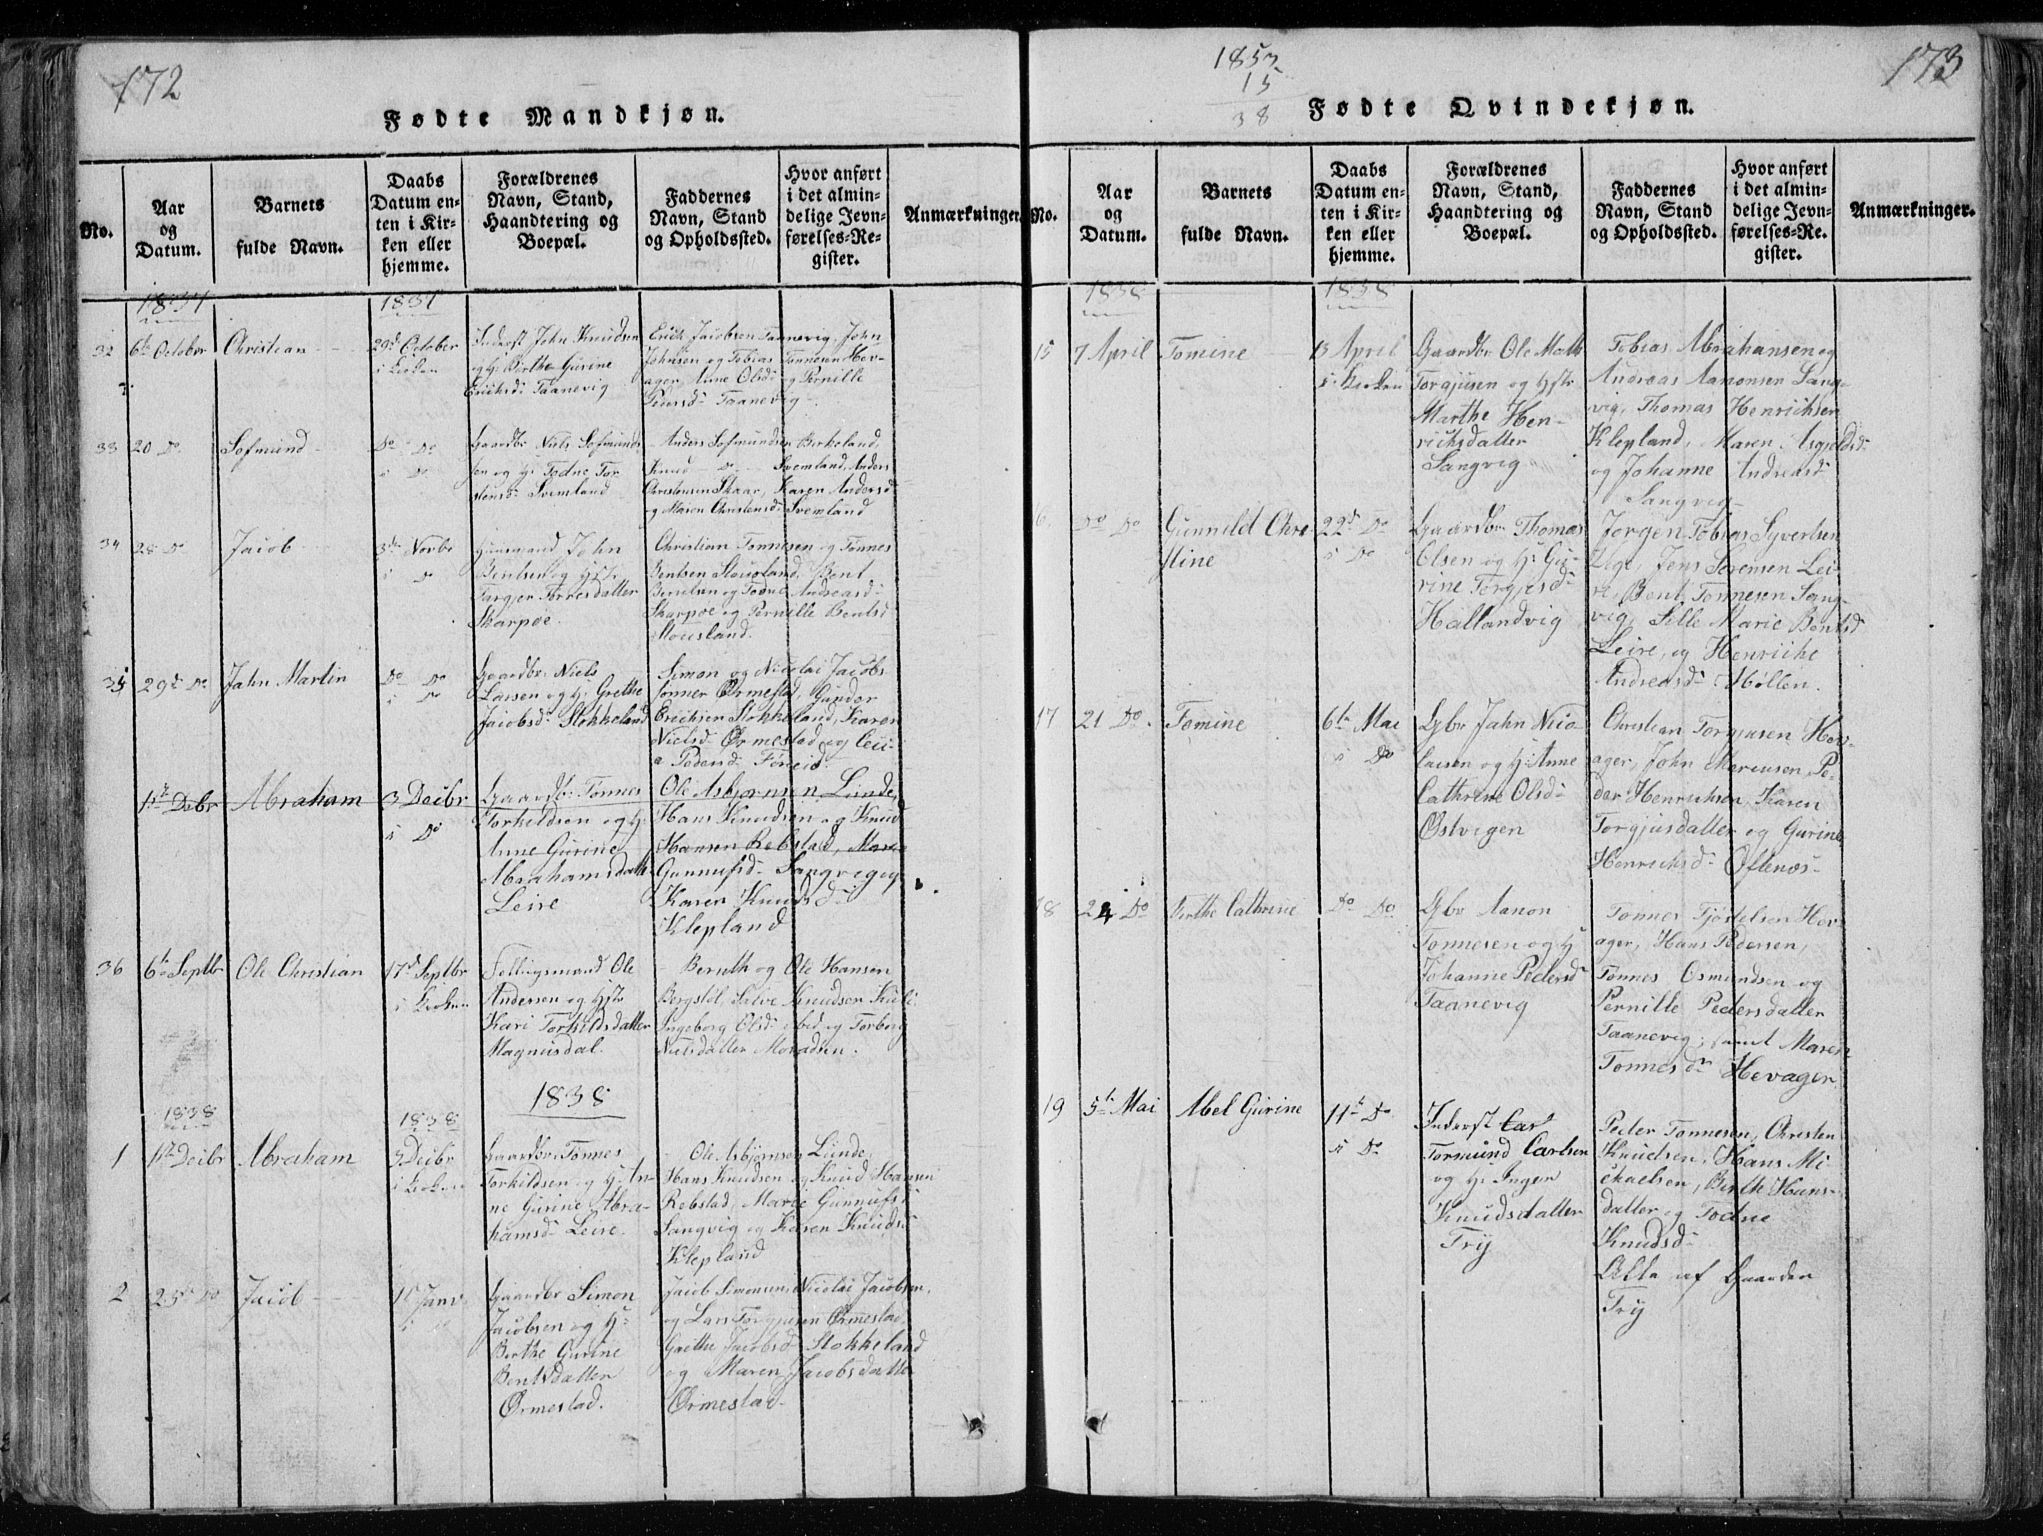 172
Fødte Mandkjøn.
No.
Aar
og
Datum.
Barnets
fulde Navn.
Daabs
Datum en-
ten i Kir-
ken eller
hjemme.
Forældrenes
Navn, Stand,
Haandtering og
Boepæl.
Faddernes
Navn, Stand
og Opholdssted.
Hvor anført
i det almin-
delige Jevn-
førelses-Re-
gister.
Anmærkninger.
1837
1837
32
6te October
Christian
29d October
i Kirken
Inderst John Knudsen
og H: Birthe Gurine
Ericksd: Taanevig
Erick Jacobsen Taanevig, John
Johnsen og Tobias Tønnesen Hev-
ager, Anne Olsd: og Pernille
Pedersd: Taanevig
33
20 Do
Sofmund
Do Do
i Do
Gaardbr. Niels Sofmunds
sen og H: Todne Tor
stensd: Svemland
Anders Sofmundsen Birkeland,
Knud Do Svemland, Anders
Christensen Skaar, Karen Andersd
og Maren Christensd: Svemland
34
28 Do
Jacob
3die Novbr
i Do
Huusmand John
Bentsen og Hstr
Targjer Tønnesdatter
Skarpøe
Christian Tønnesen og Tønnes
Bentsen Stousland, Bent
Berntsen og Todne Andreasd:
Skarpøe og Pernille Bentsd
Stousland.
35
29d Do
Jahn Martin
Do Do
i Do
Gaardbr. Niels
Larsen og H: Grethe
Jacobsd: Stokkeland
Simon og Nicolai Jacobs
sønner Ørmestad, Gunder
Erichsen Stokkeland, Karen
Nielsd: Ørmestad og
1te Decbr
Abraham
3 Decbr
i Do
Gaardbr: Tønnes
Torkildsen og H:
Anne Gurine
Abrahamsdatt
Leire
Ole Asbjørnsen Lunde,
Hans Knudsen og Knud
Hansen Rebstad, Marie
Gunnufsd: Sangvig og
Karen Knudsd:
Klepland
36
6te Septbr
Ole Christian
17d Septbr
i Kirken
Fellingsmand Ole
Andersen og Hstr
Kari Torkildsdatter
Magnusdal.
Beruth og Ole Hansen
Bergstøl, Salve Knudsen
Ingeborg Olsd: ibid og Torborg
Nielsdatter
1838
1838
1838
1
1te Decbr
Abraham
3 Decbr
i Kirken
Gaardbr: Tønnes
Torkildsen og H: An-
ne Gurine Abra-
hamsd: Leire.
Ole Asbjørnsen Lunde,
Hans Knudsen og Knud Hansen
Rebstad, Marie Gunnufsd:
Sangvig og Karen Knudsd:
Klepland
2
25de Do
Jacob
1ste Janv.
Gaardbr Simon
Jacobsen og H:
Birthe Gurine
Bentsdatter
Ørmestad.
Jacob Simonsen, Nicolai Jacobsen,
og Lars Torgjusen Ørmestad,
Grethe Jacobsd: Stokkeland
og Maren Jacobsdatter
Ørmestad.
173
1853
15
38
Fødte Qvindekjøn.
No.
Aar
og
Datum.
Barnets
fulde Navn.
Daabs
Datum en-
ten i Kir-
ken eller
hjemme.
Forældrenes
Navn, Stand,
Haandtering og
Boepæl.
Faddernes
Navn, Stand
og Opholdssted.
Hvor anført
i det almin-
delige Jevn-
førelses-Re-
gister.
Anmærkninger.
1838
1838
15
7 April
Tomine
13 April
i Kirken
Gaardbr. Ole Math
Torgjusen og Hstr
Marthe Hen-
richsdatter
Sangvig
Tobias Abrahansen og
Andreas Aanonsen Sang-
vig, Thomas Henrichsen
Klepland, Maren Asgjeldsd:
og Johanne Andreasd
Sangvig
6
Do Do
Gunnild Chri
stine
22d Do
i Do
Gaardbr. Thomas
Olsen og H: Gu-
rine Torgjesd:
Hallandvig
Jørgen Tobias Syvertsen
Uge, Jens Sørensen Lei-
re, Bent Tønnesen Sang-
vig, Sille Marie Bentsd
Leire, og Henriche
Andreasd: Høllen.
17
21 Do.
Tomine
6te Mai
i Do
Gbr Jahn Nico
laisen og H: Anne
Cathrine Olsd:
Østvigen
Christian Torgjusen Hev-
ager, John Mortensen, Pe-
der Henrichsen, Karen
Torgjusdatter og Gurine
Henrichsd: Oftenæs
18
24 Do
Birthe Cathrine
Do Do
Gbr Aanon
Tønnesen og H
Johanne Pedersd
Taanevig
Tønnes Tjøstelsen Hev
ager, Hans Pedersen,
Tønnes Osmundsen og
Pernille Pedersdatter
Taanevig, samt Maren
Tønnesdr Hevager
19
5te Mai
Abel Gurine
11te Do
i Do
Inderst Car
Tormund Carlsen
og H: Inger
Knudsdatter
Try
Peder Tønnesen, Christen
Knudsen, Hans Mi-
chaelsen, Birth Hans-
datter og Todne
Knudsd:
Alle af Gaarden
Try